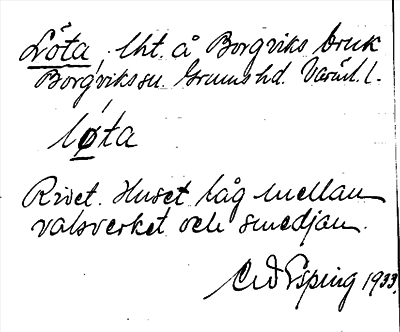 Löta, lht. å Borgviks bruk
Borgvikssn. Grums hd. Värml. l.
løta
Rivet. Huset låg mellan
valsverket och smedjan.
C W Esping 1933.